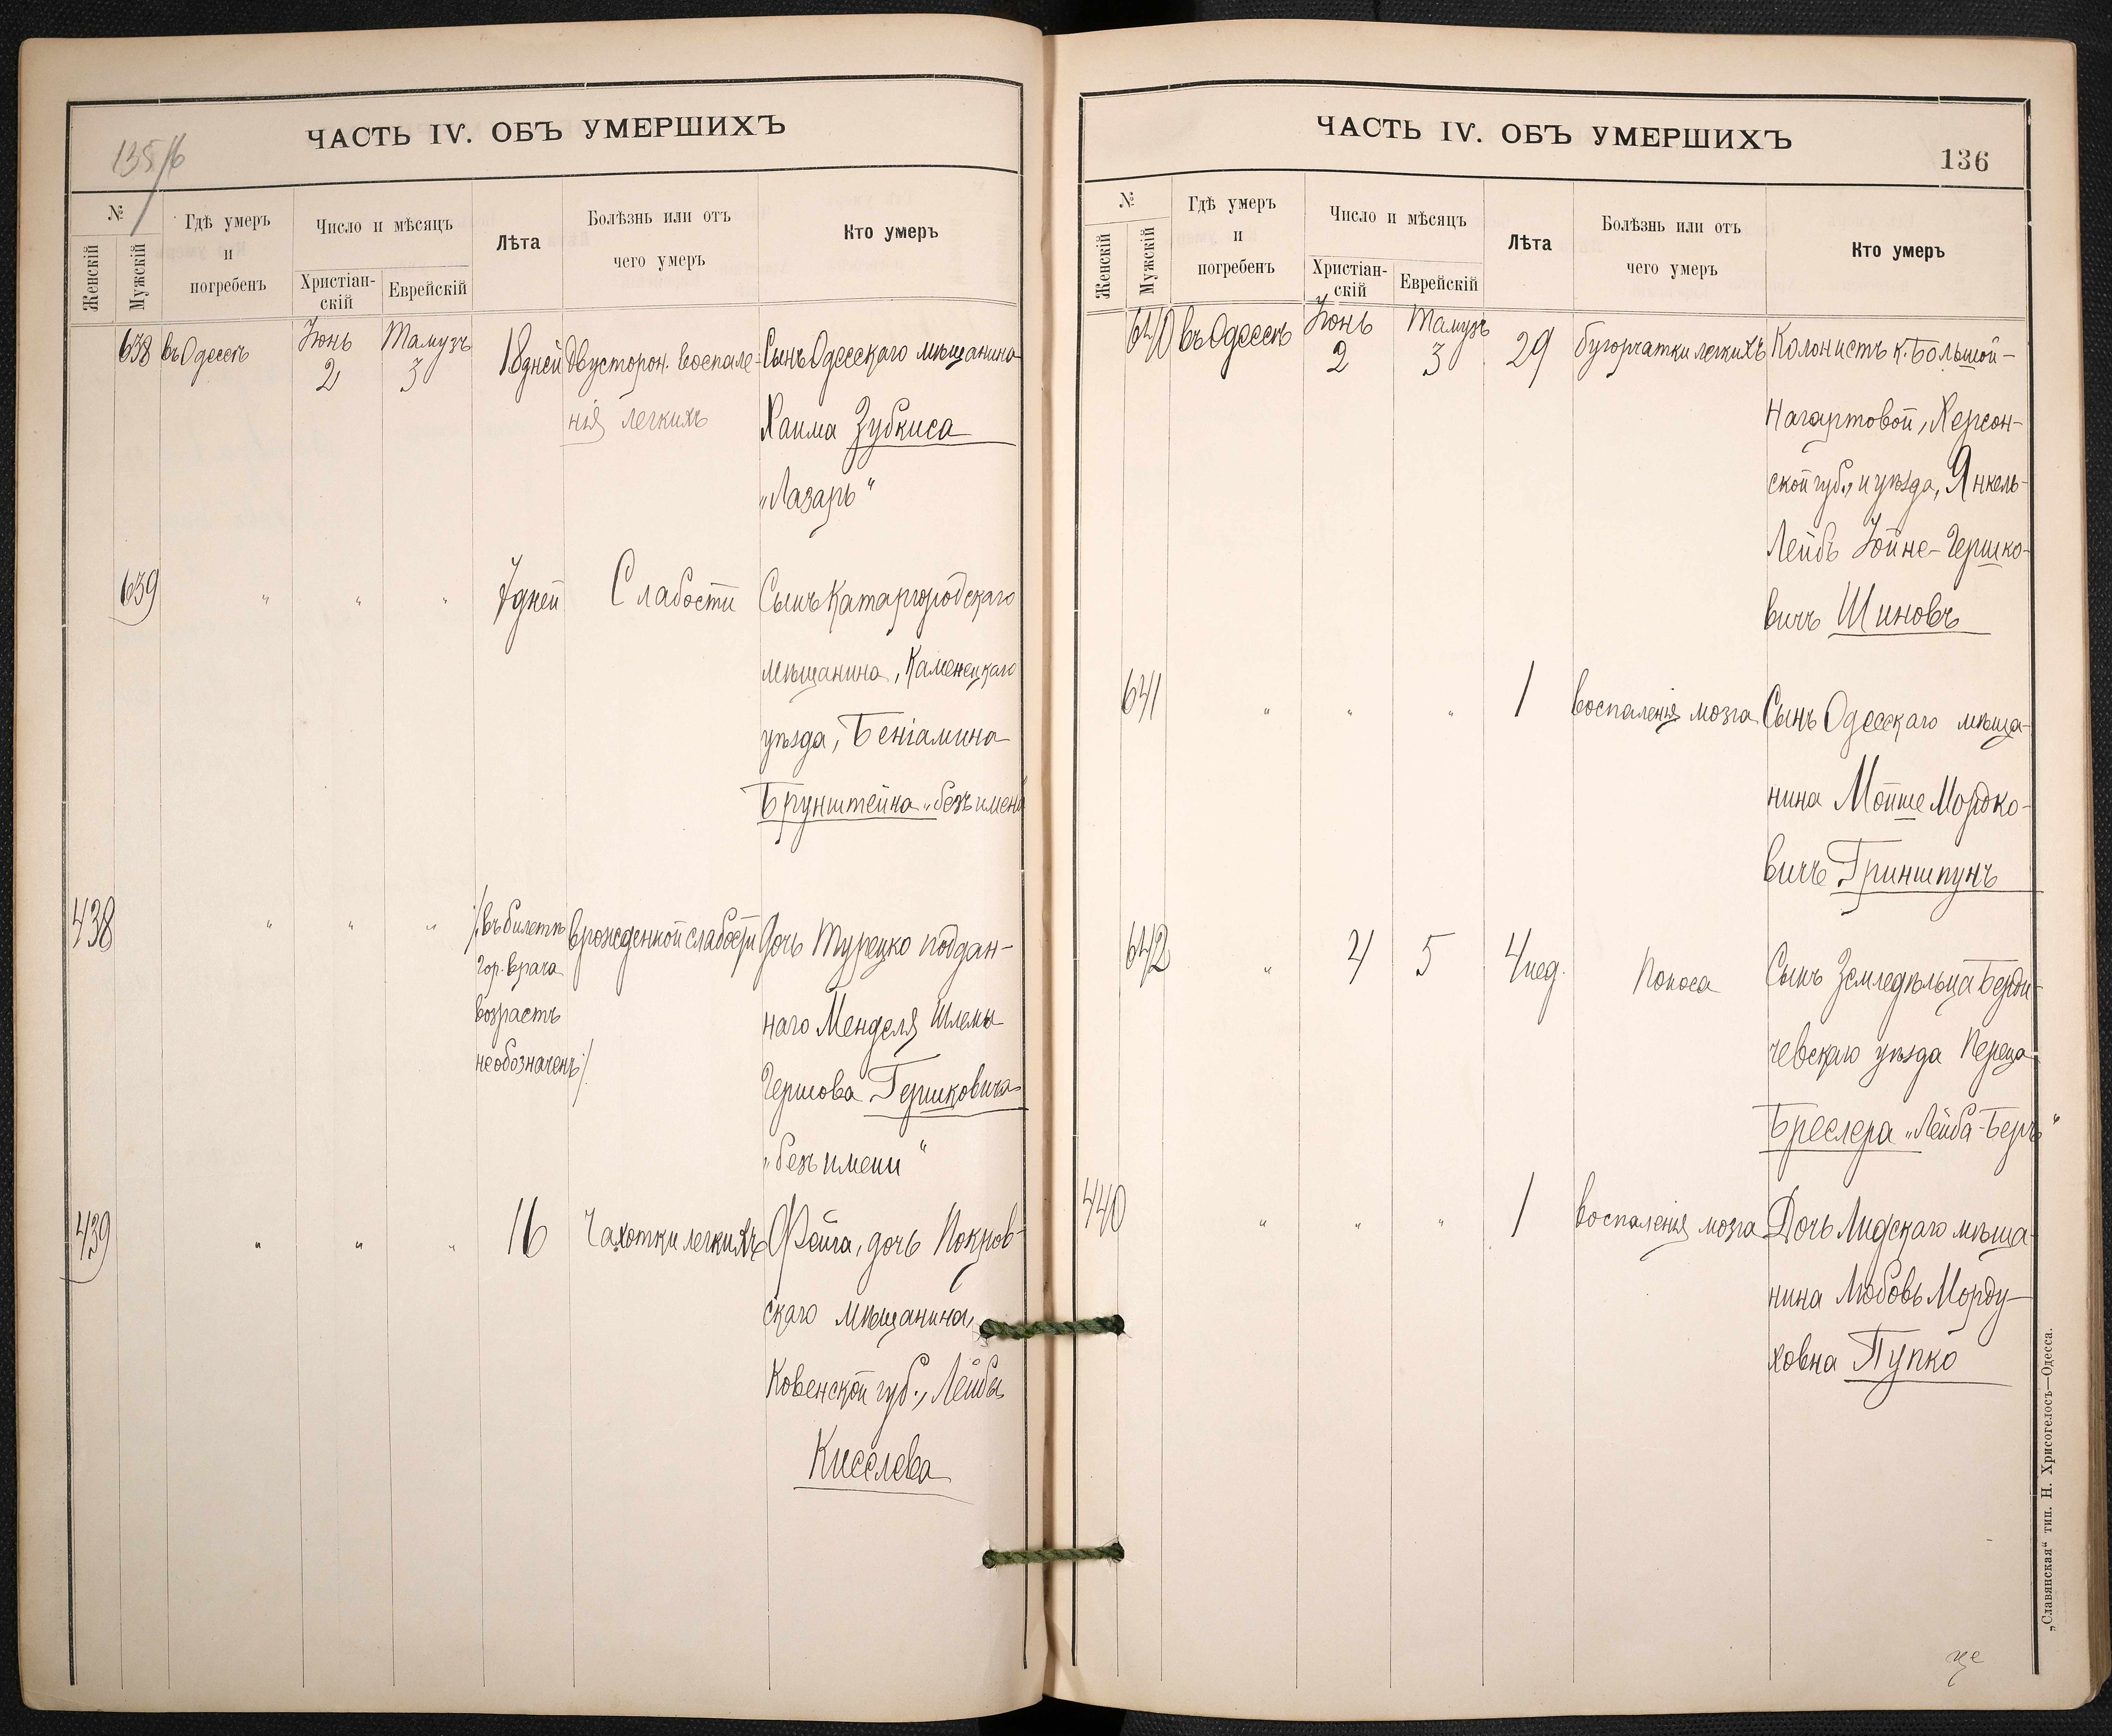 ЧАСТЬ IV. ОБЪ УМЕРШИХЪ
135/6
№
Женскій
Мужскій
Гдѣ умеръ
и
погребенъ
Число и мѣсяцъ
Христіан-
скій
Еврейскій
Лѣта
Болѣзнь или отъ
чего умеръ
Кто умеръ
638 въ Одессѣ Іюнь 2 Тамузъ 3 18 дней двусторон. воспале- Сынъ Одесскаго мѣщанина
нія легкихъ Хаима Зубкиса
„Лазарь“
639 " " " 7 дней Слабости Сынъ Катаргородскаго
мѣщанина, Каменецкаго
уѣзда, Беніамина
Брунштейна „безъ имени“
438 " " " /въ билетѣ врожденной слабости Дочь Турецко поддан-
гор. врача
наго Менделя Шлемы
возрастъ
необозначенъ/.
Гершова Гершковича
„безъ имени“
439 " " " 16 Чахотки легкихъ Фейга, дочь Покров-
скаго мѣщанина,
Ковенской губ., Лейбы
Киселева
ЧАСТЬ IV. ОБЪ УМЕРШИХЪ
136
№
Женскій
Мужскій
Гдѣ умеръ
и
погребенъ
Число и мѣсяцъ
Христіан-
скій
Еврейскій
Лѣта
Болѣзнь или отъ
чего умеръ
Кто умеръ
640 въ Одессѣ Іюнь 2 Тамузъ 3 29 бугорчатки легкихъ Колонистъ к. Большой-
Нагартовой, Херсон-
ской губ., и уѣзда, Янкель-
Лейбъ Іойне-Гершко-
вичъ Шиновъ
641 " " " 1 воспаленія мозга Сынъ Одесскаго мѣща-
нина Мойше Мордко-
вичъ Гриншпунъ
642 " 4 5 4 нед. Поноса Сынъ Земледѣльца Берди-
чевскаго уѣзда Переца
Бреслера „Лейба-Беръ“
440 " " " 1 воспаленія мозга Дочь Лидскаго мѣща-
нина Любовь Морду-
ховна Пупко
„Славянская“ тип. Н. Хрисогелосъ—Одесса.